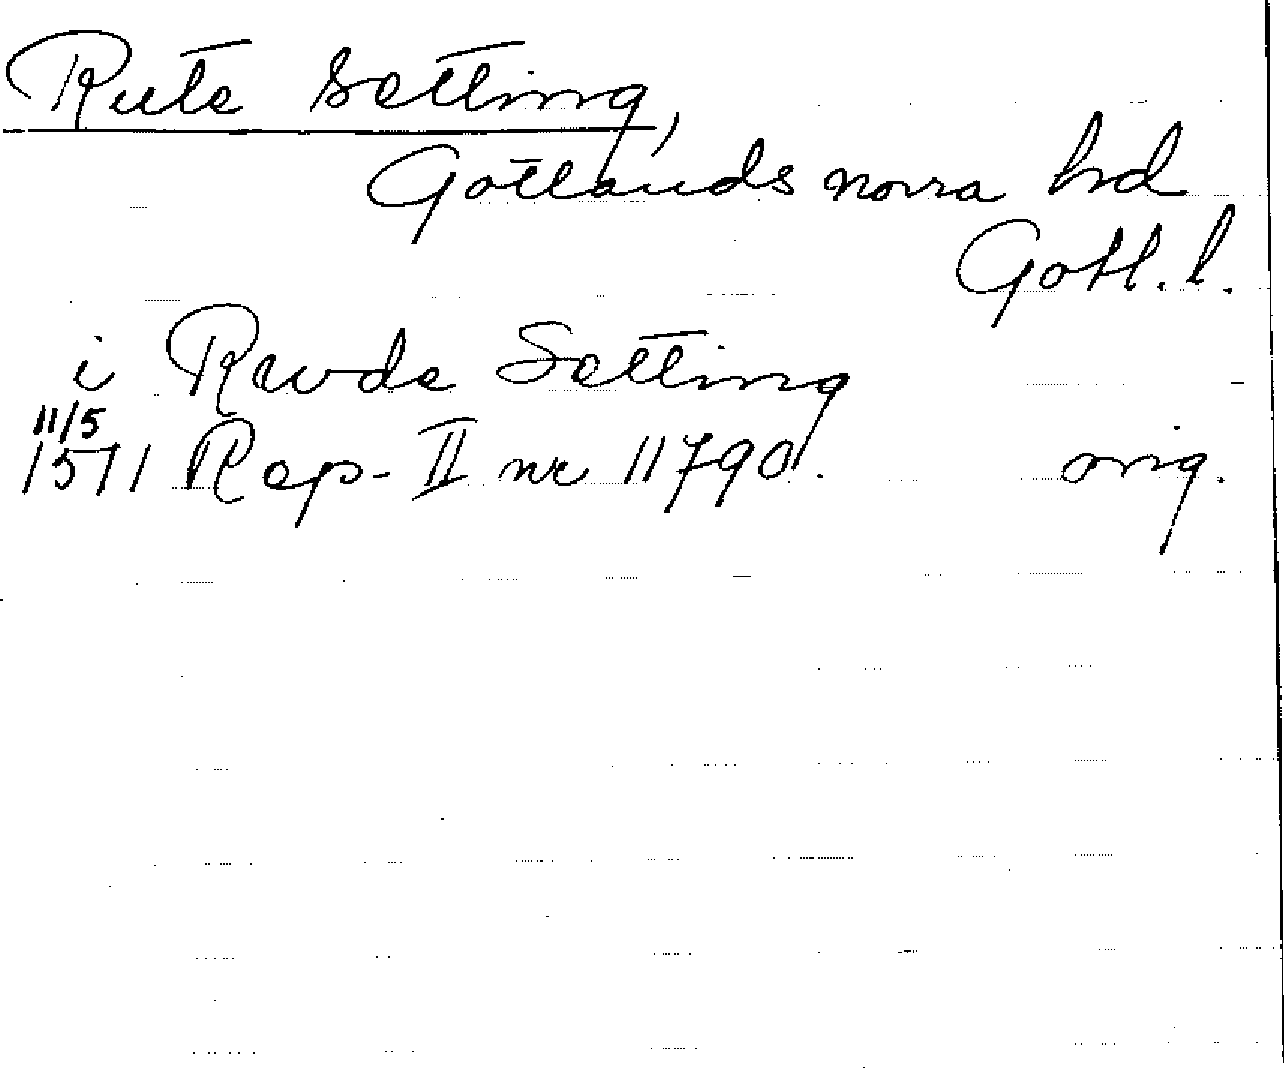 Rute setting,
Gotlands norra hd
Gotl. l.
i Rwde Setting
11/5
1571 Rep. II nr 11790. orig.